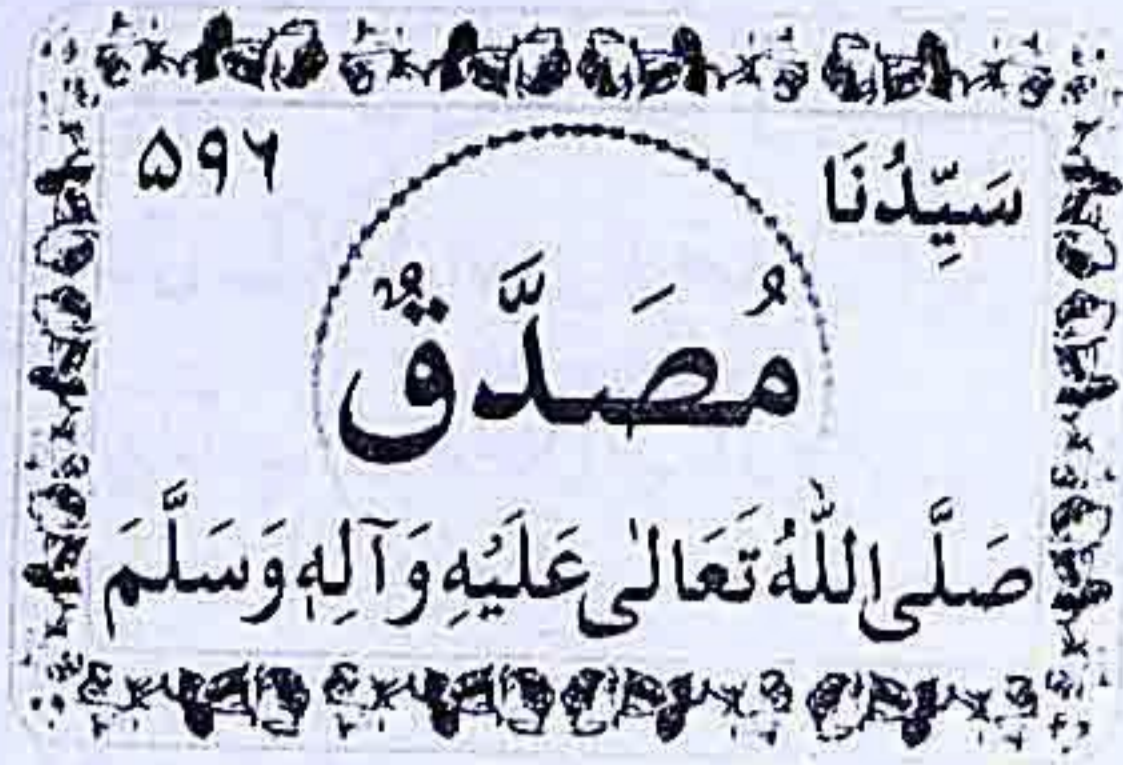 سَيِّدُنَا ۵۹۶
مُصَدَّقٌ
صَلَّى اللّٰهُ تَعَالٰى عَلَيْهِ وَآلِهٖ وَسَلَّمَ